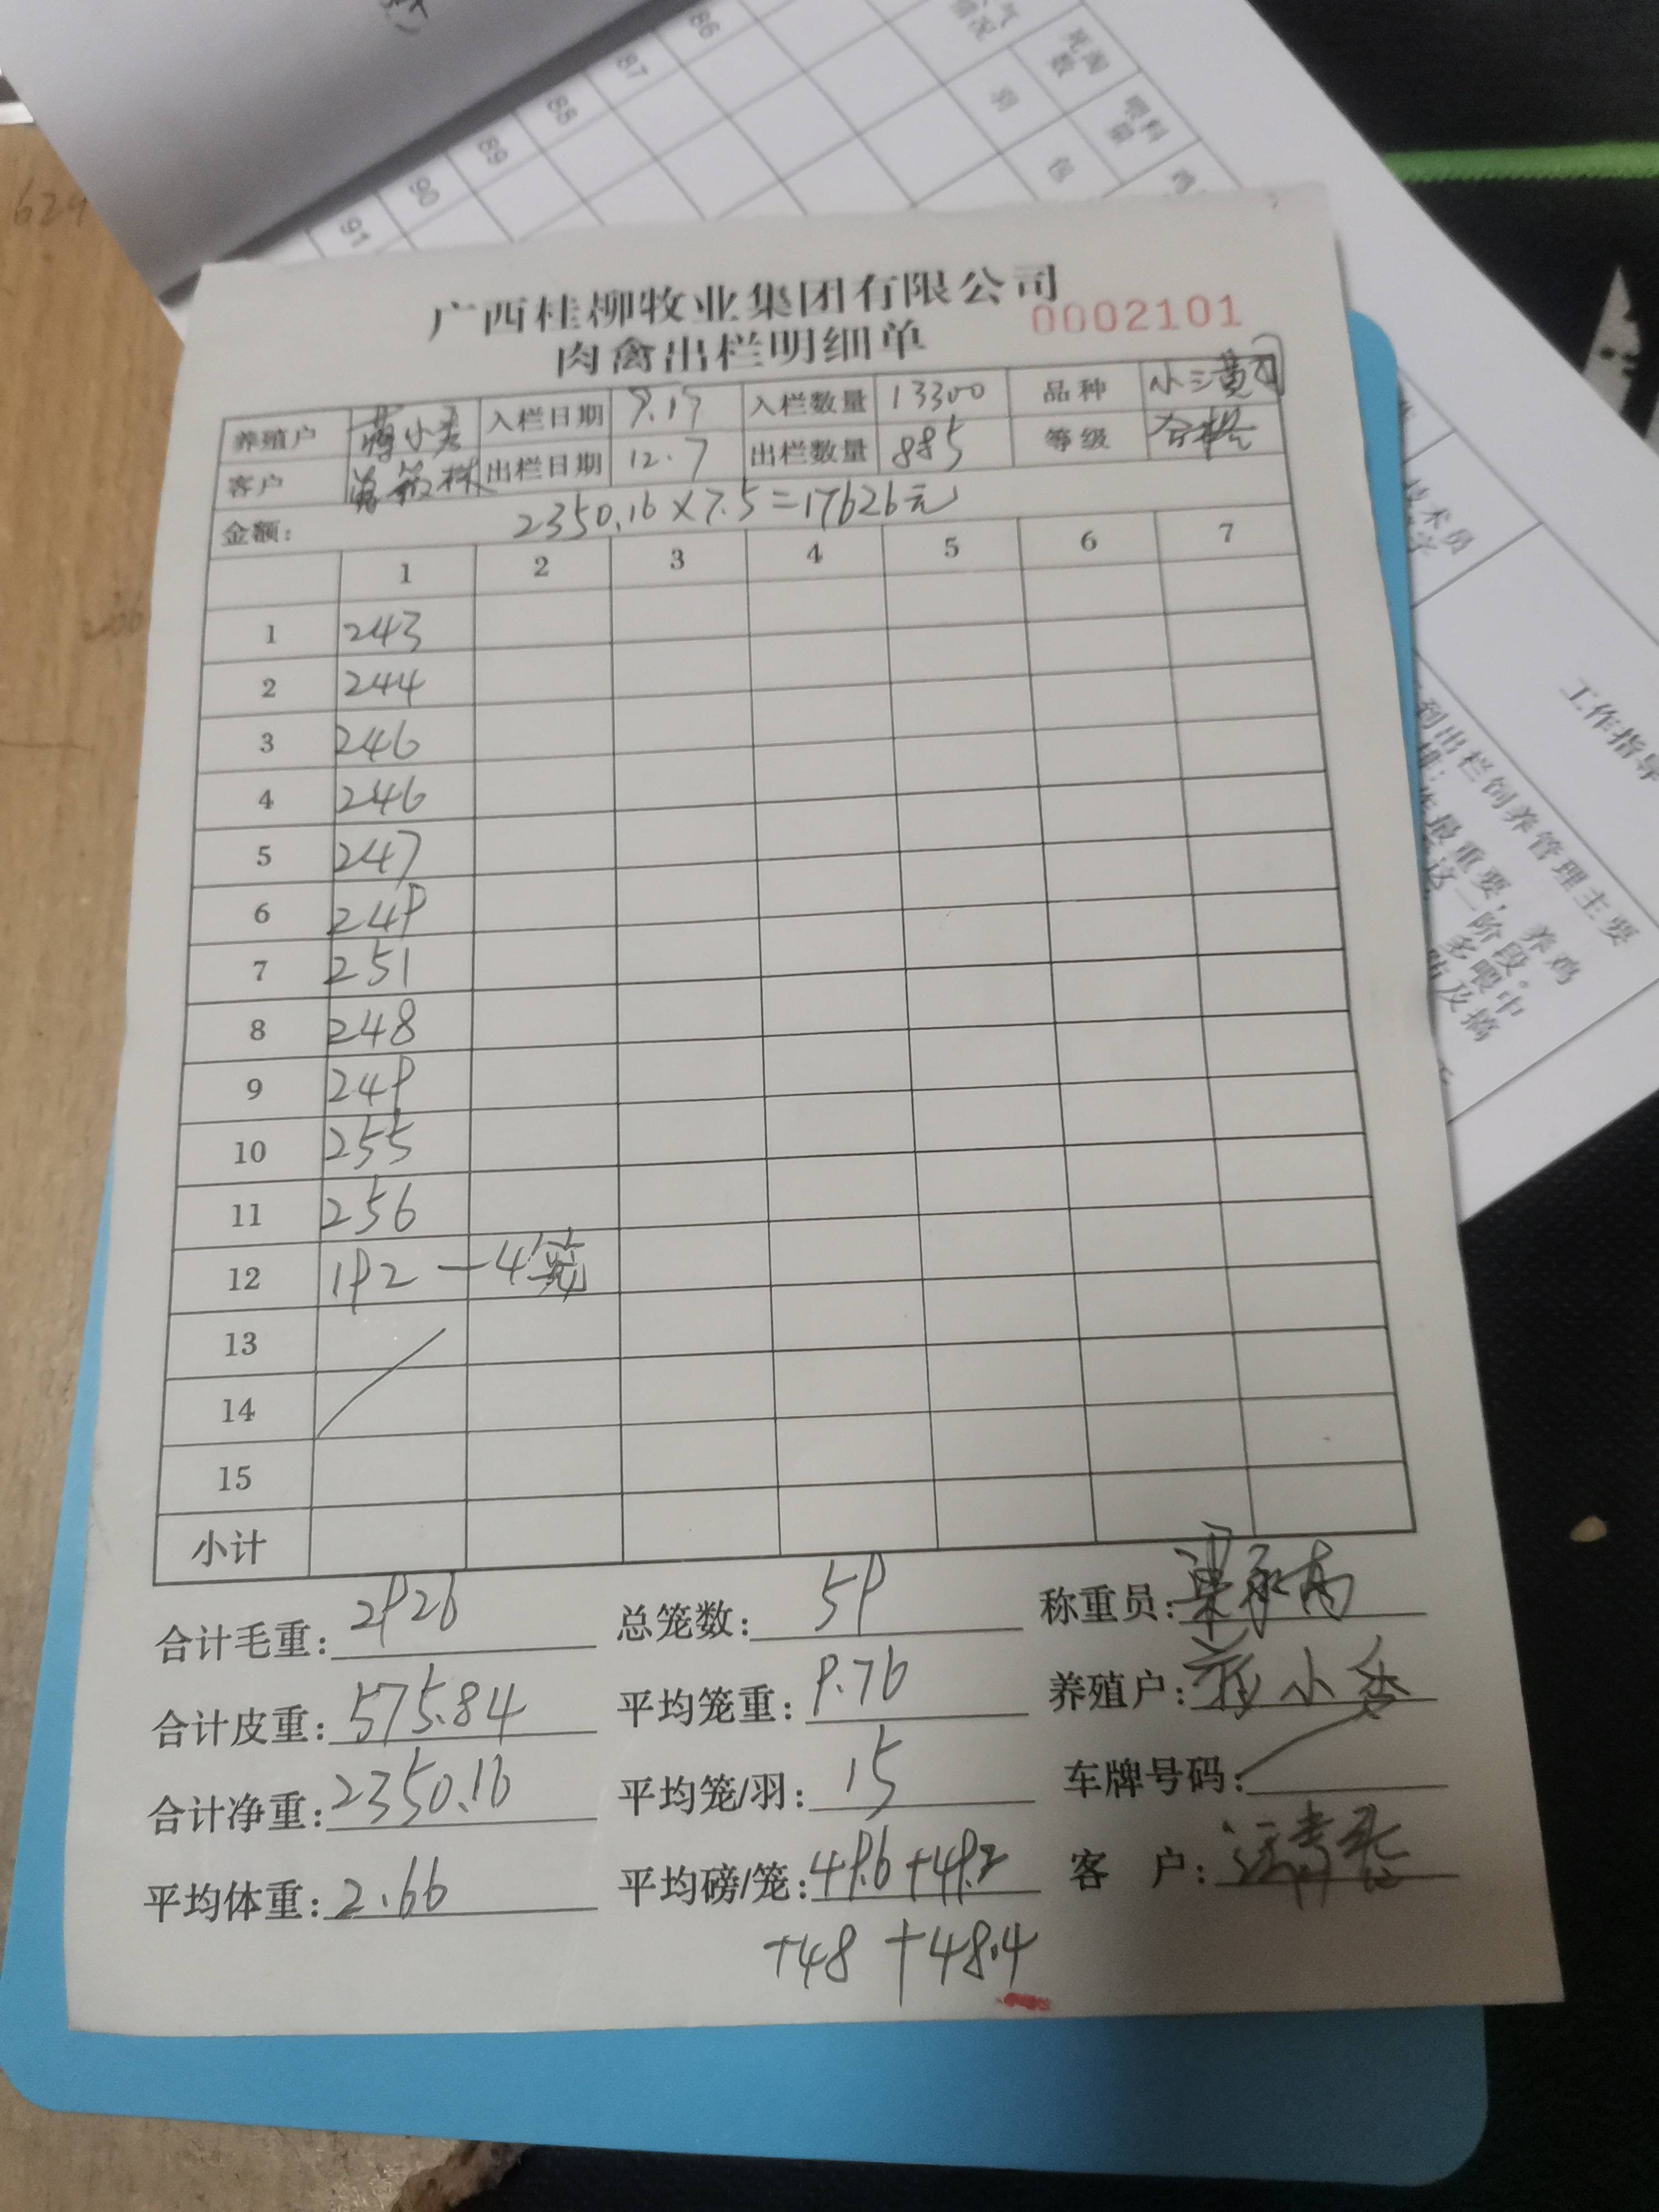 86
87
88
89
90
91
羽
包
广西桂柳牧业集团有限公司
肉禽出栏明细单 0002101
养殖户 入栏日期 9.17 入栏数量 13300 品种 小三黄
客户 出栏日期 12.7 出栏数量 885 等级 合格
金额: 2350.16×7.5=17626元
1 2 3 4 5 6 7
1 243
2 244
3 246
4 246
5 247
6 249
7 251
8 248
9 249
10 255
11 256
12 192 — 4笼
13
14
15
小计
合计毛重: 2926 总笼数: 59 称重员:
合计皮重: 575.84 平均笼重: 9.76 养殖户: 蒋小香
合计净重: 2350.16 平均笼/羽: 15 车牌号码:
平均体重: 2.66 平均磅/笼: 49.6+49.2 客 户:
+48+48.4
工作指导
到出栏饲养管理主要
最重要,养鸡
这一阶段。
多喂中